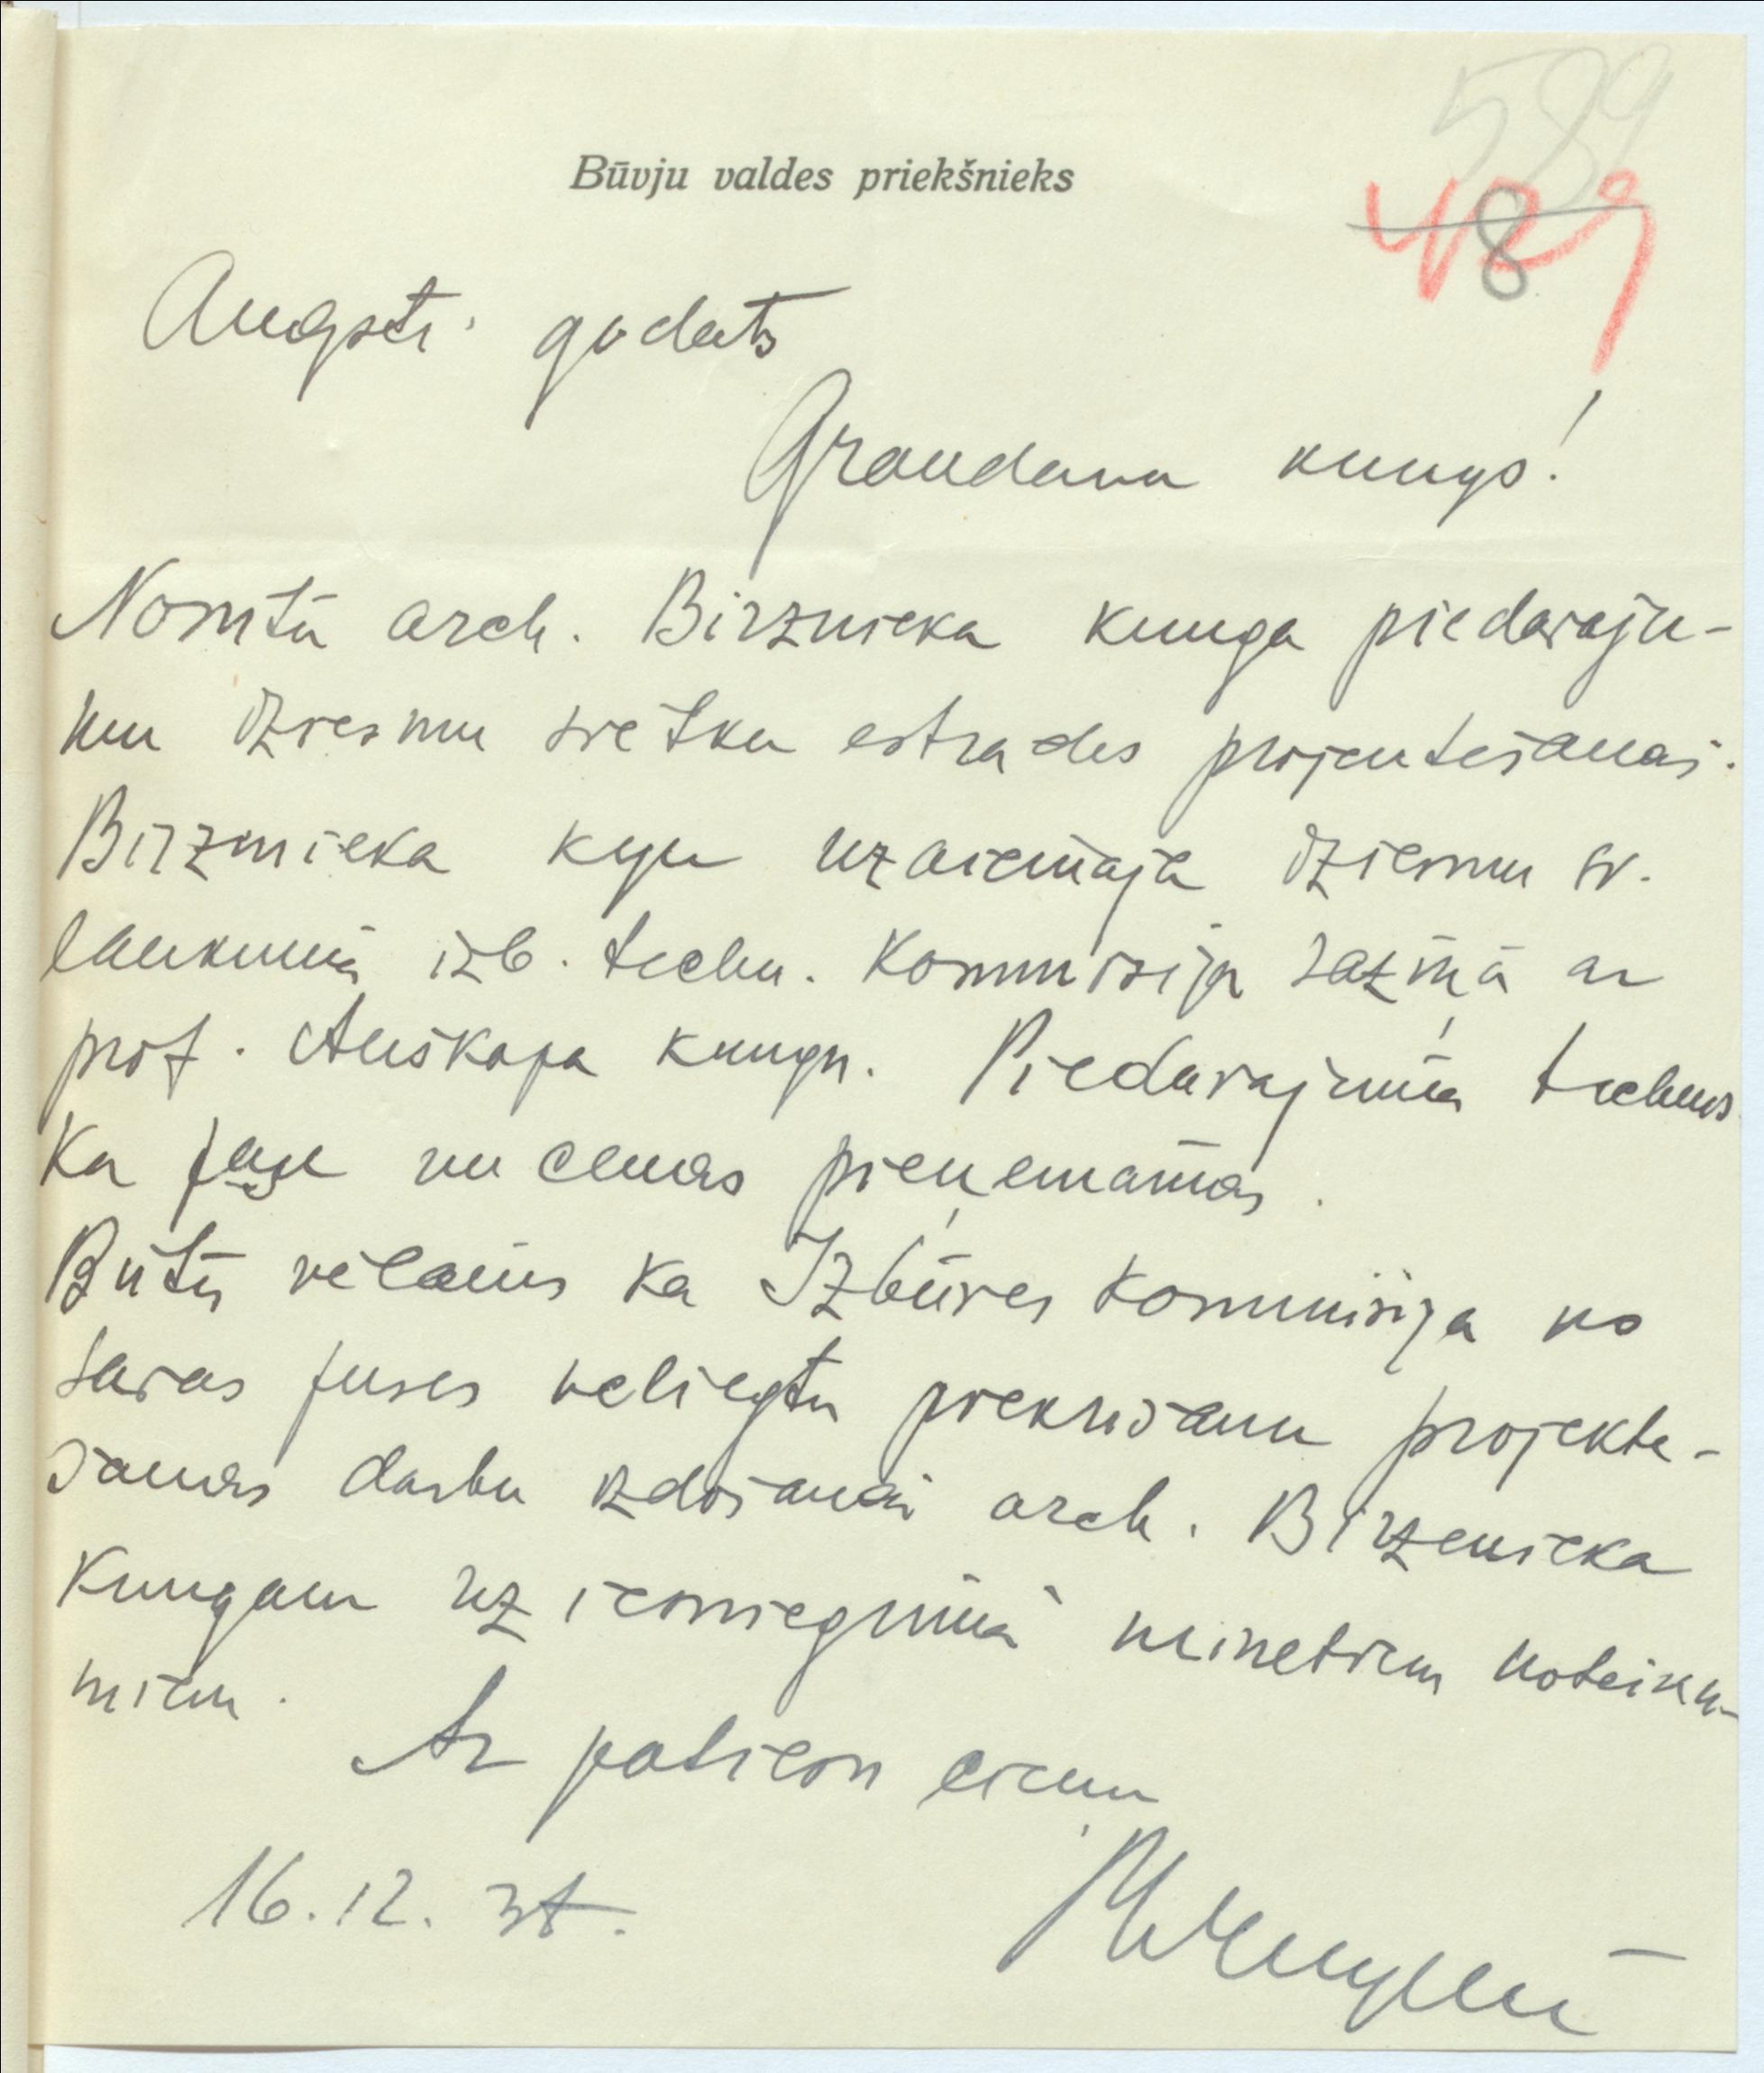 589
Būvju valdes priekšnieks
489
8
Augsti godāts
Graudiņa kungs!
Nosūtu arch. Birznieka kunga piedavāju-
mu dziesmu svētku estrādes projektēšanai.
Birznieka kgu uzaicināja dziesmu sv.
laukuma izb. techn. Kommisija saziņā ar
prof. Auškāpa kungu. Piedāvājuma technis
kā puse un cenas pieņemamas.
Būtu vēlams ka Izbūves Kommisija no
savas puses neliegtu piekrišanu projektē-
šanas darbu izdošanai arch. Birznieka
Kungam uz iesniegumā minētiem noteiku-
miem.
Ar patiesu cieņu
16. 12. 37.